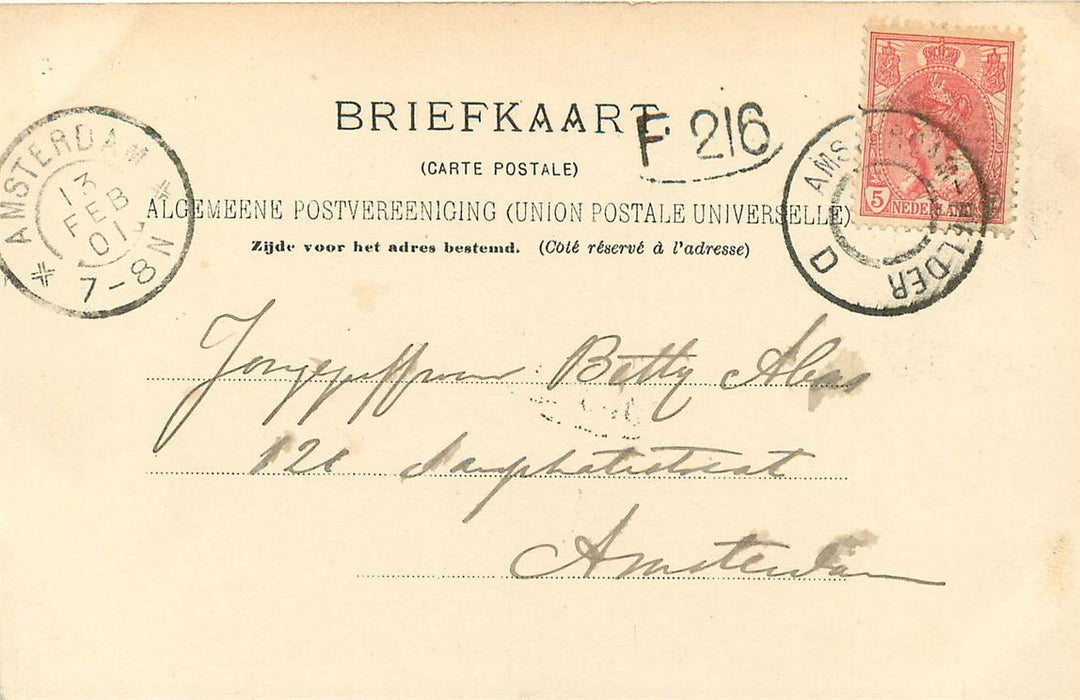 BRIEFKAART
F. 216
(CARTE POSTALE)
ALGEMEENE POSTVEREENIGING (UNION POSTALE UNIVERSELLE)
Zijde voor het adres bestemd. (Côté réservé à l'adresse)
AMSTERDAM
13
FEB
01
7-8N
5 NEDERLAND
AMSTERDAM-HELDER
D
Betty
Amsterdam